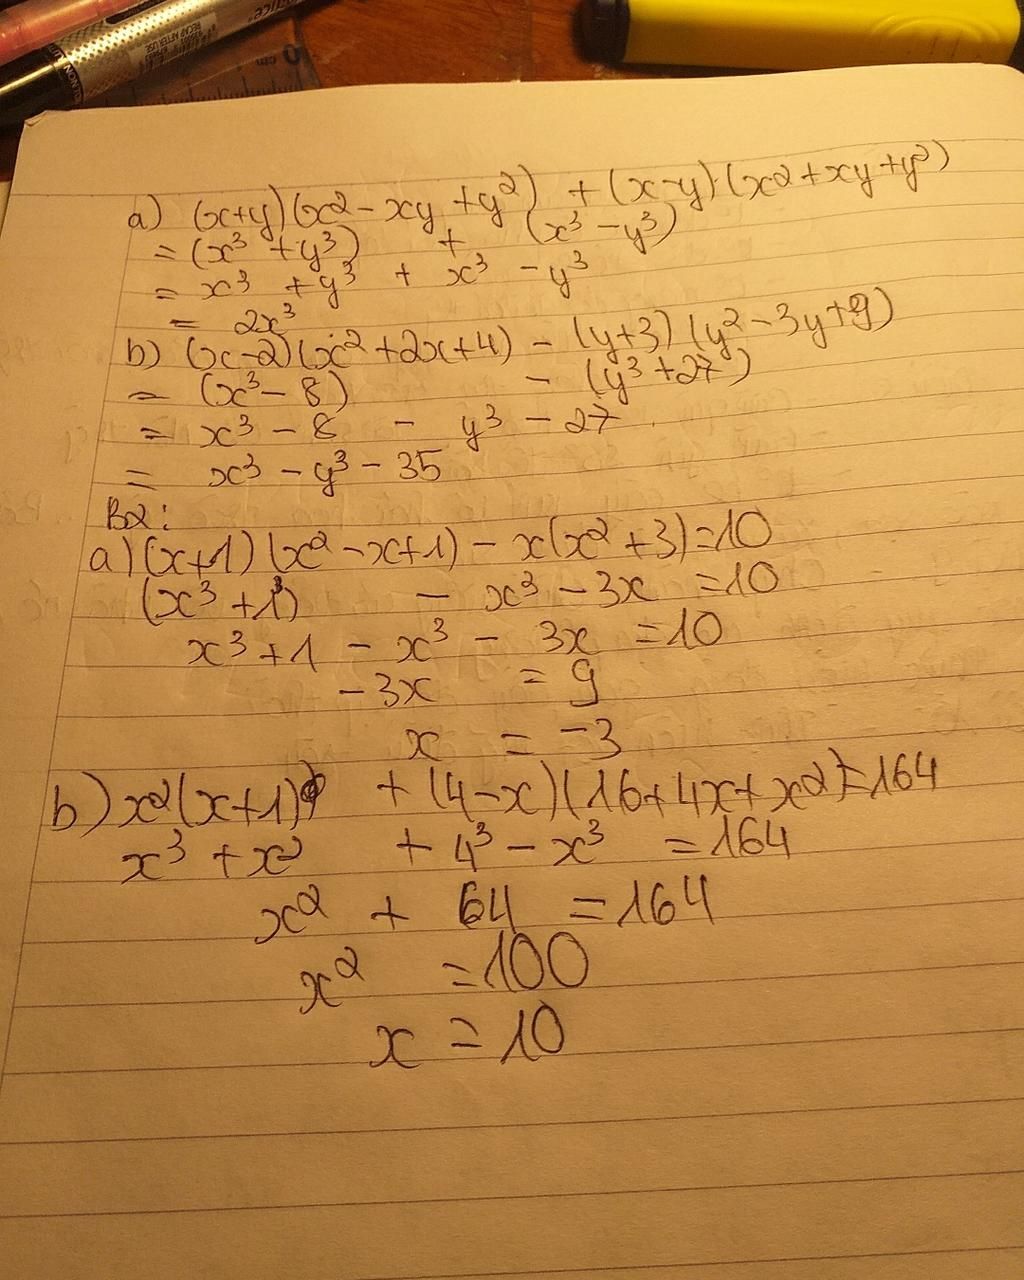 RECAP AFTER USE
0 cm
a) (x+y)(x² - xy + y²) + (x-y)(x² + xy + y²)
= (x³ + y³) + (x³ - y³)
= x³ + y³ + x³ - y³
= 2x³
b) (x-2)(x² + 2x + 4) - (y+3)(y² - 3y + 9)
= (x³ - 8) - (y³ + 27)
= x³ - 8 - y³ - 27
= x³ - y³ - 35
B2:
a) (x+1)(x² - x + 1) - x(x² + 3) = 10
(x³ + 1³) - x³ - 3x = 10
x³ + 1 - x³ - 3x = 10
-3x = 9
x = -3
b) x²(x+1) + (4-x)(16 + 4x + x²) = 164
x³ + x² + 4³ - x³ = 164
x² + 64 = 164
x² = 100
x = 10